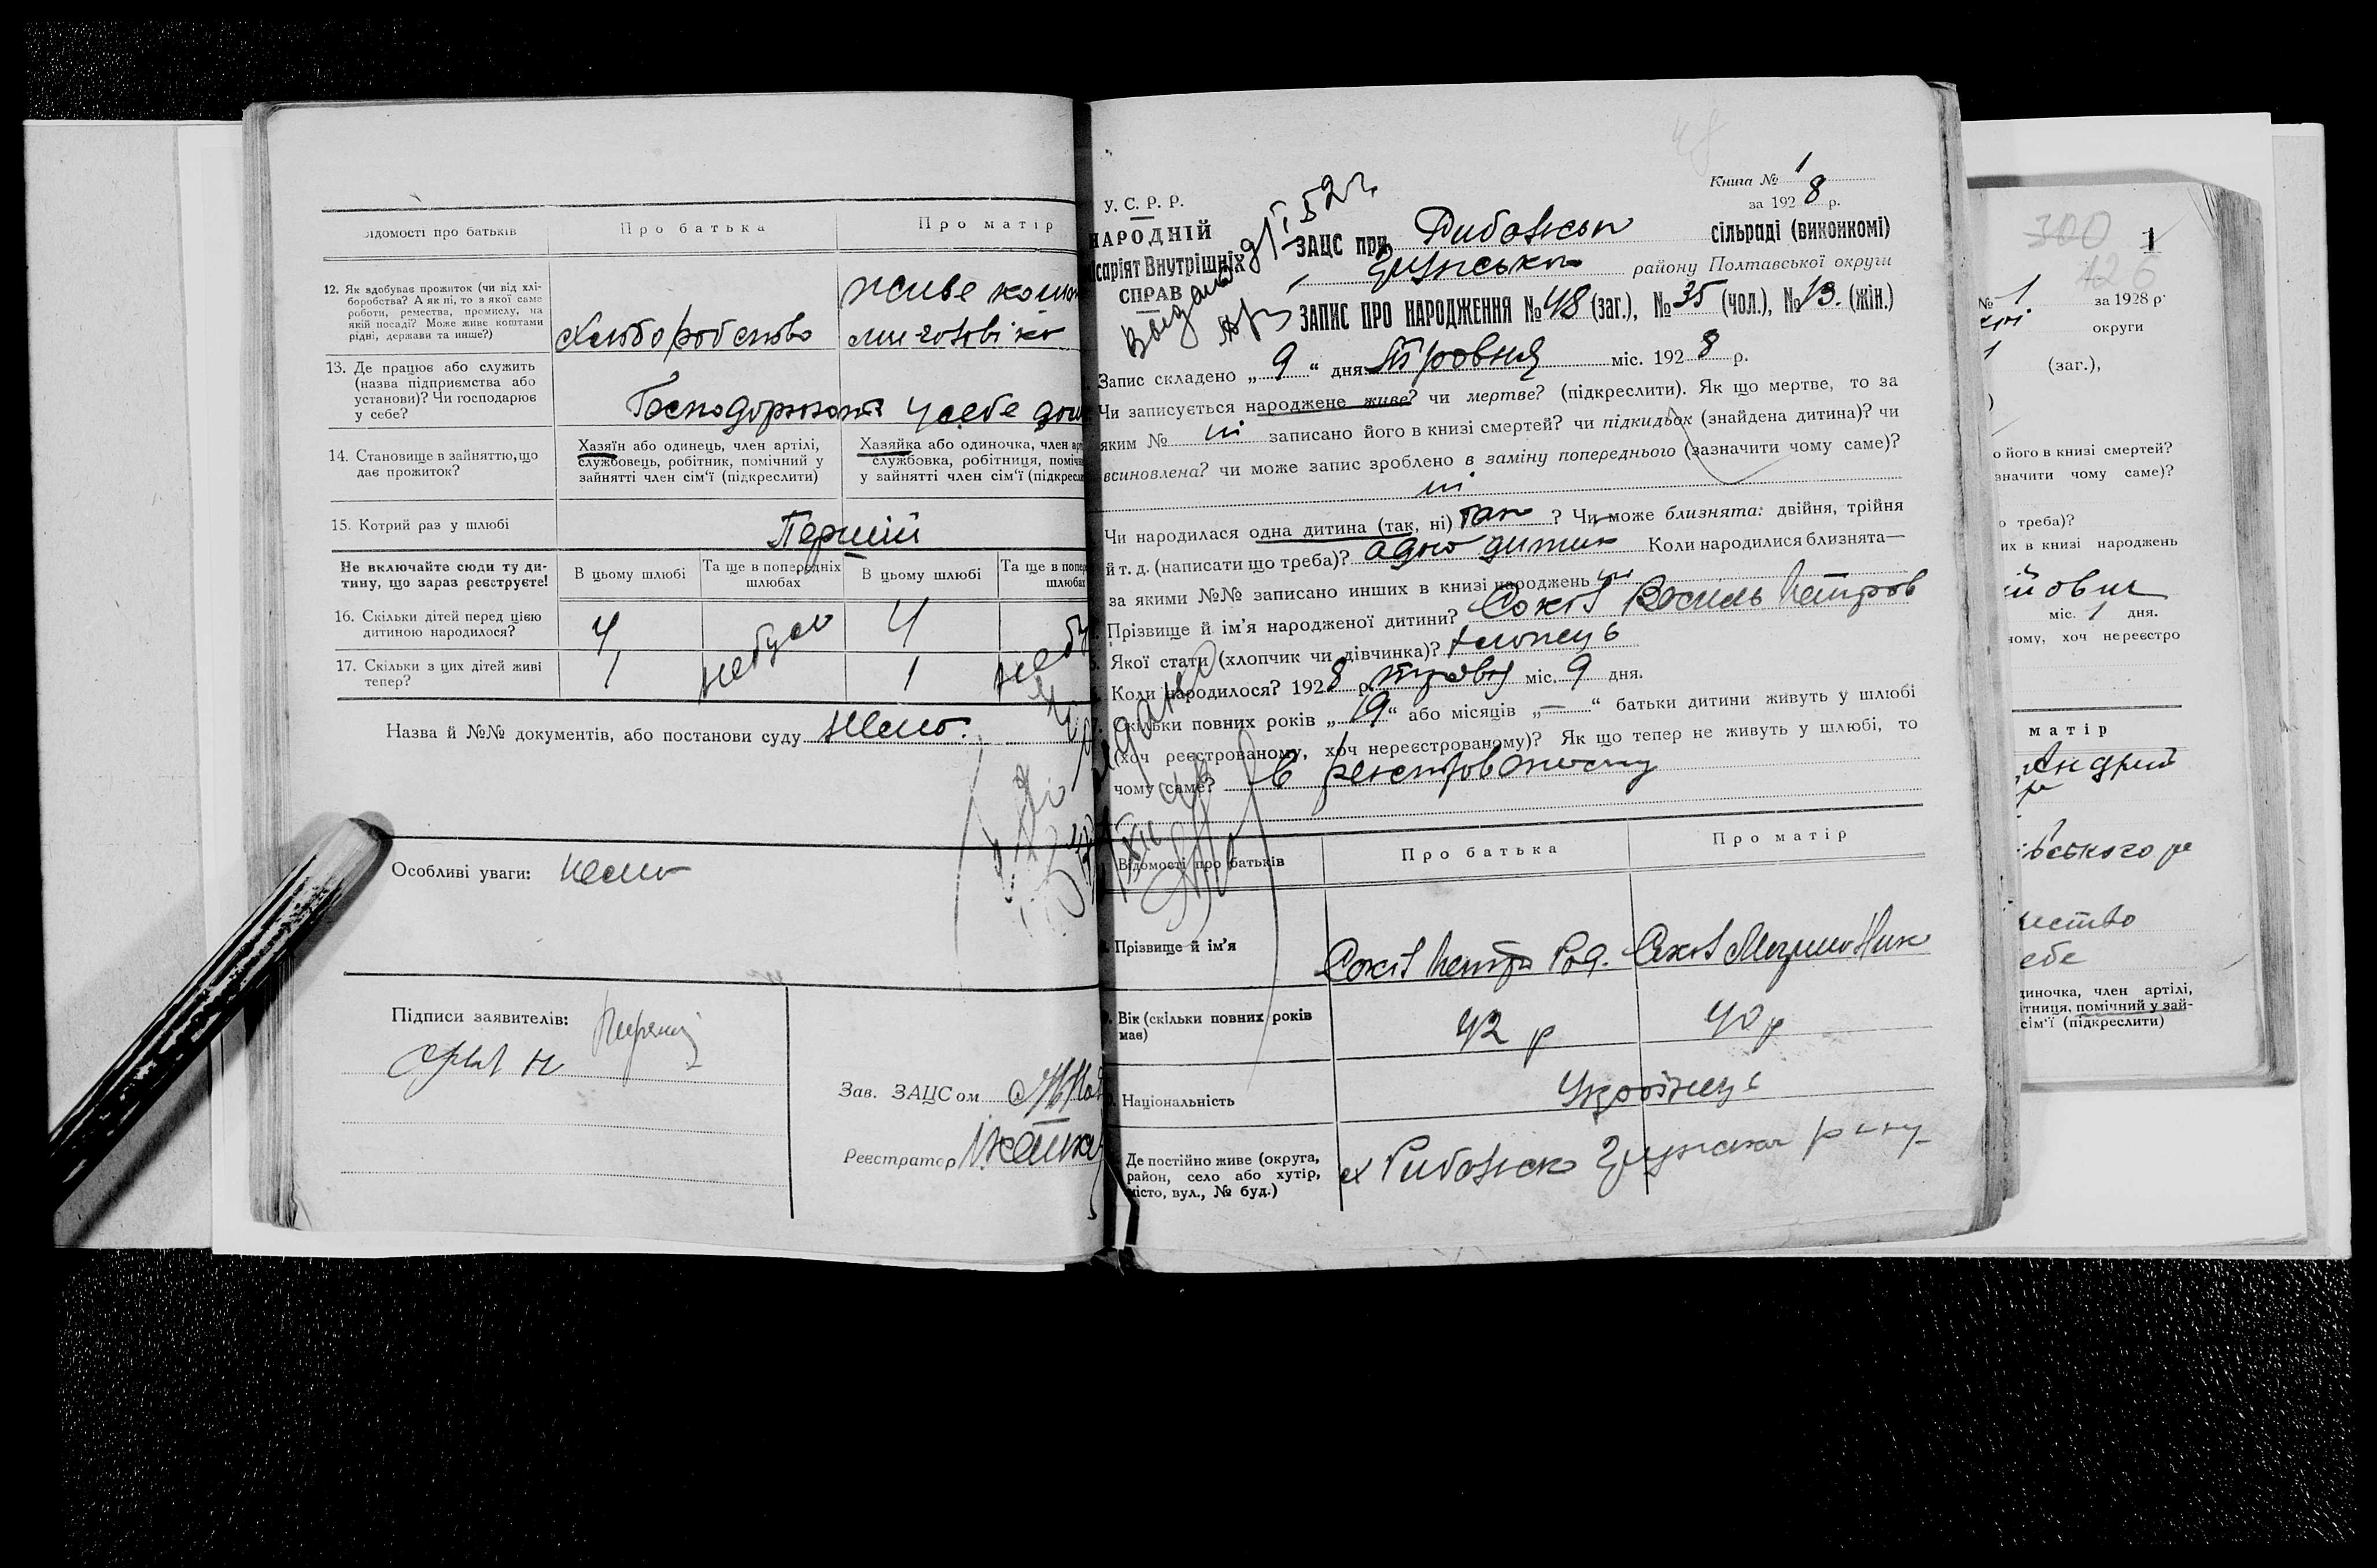 відомості про батьків
Про батька
Про матір
12. Як здобуває прожиток (чи від хлі-
боробства? А як ні, то з якої саме
роботи, ремества, промислу, на
якій посаді? Може живе коштами
рідні, держави та инше?)
Хлібо робство
живе кошт
ми чоловіка
13. Де працює або служить
(назва підприємства або
установи)? Чи господарює
у себе?
Господорюють у себе дом
14. Становище в зайняттю, що
дає прожиток?
Хазяїн або одинець, член артілі,
службовець, робітник, помічний у
зайнятті член сім'ї (підкреслити)
Хазяйка або одиночка, член арт
службовка, робітниця, поміч
у зайнятті член сім'ї (підкресл
15. Котрий раз у шлюбі
Перший
Не включайте сюди ту ди-
тину, що зараз реєструєте!
В цьому шлюбі
Та ще в попередніх
шлюбах
В цьому шлюбі
Та ще в попер
шлюбах
16. Скільки дітей перед цією
дитиною народилося?
4
не було
4
не бу
17. Скільки з цих дітей живі
тепер?
1
1
Назва й №№ документів, або постанови суду
Нема.
Особливі уваги: нема
Підписи заявителів:
Зав. ЗАЦСом
Реєстратор
У. С. Р. Р.
НАРОДНІЙ
ісаріят Внутрішніх
СПРАВ
52 г
Книга № 1
за 1928 р.
ЗАЦС при сільраді (виконкомі)
району Полтавської округи
ЗАПИС ПРО НАРОДЖЕННЯ № 48 (заг.), № 35 (чол.), № 13. (жін.)
Запис складено „ 9 “ дня Травня міс. 1928 р.
Чи записується народжене живе? чи мертве? (підкреслити). Як що мертве, то за
яким № ні записано його в книзі смертей? чи підкидьок (знайдена дитина)? чи
всиновлена? чи може запис зроблено в заміну попереднього (зазначити чому саме)?
ні
Чи народилася одна дитина (так, ні) так ? Чи може близнята: двійня, трійня
й т. д. (написати що треба)? одна дитина Коли народилися близнята—
за якими №№ записано инших в книзі народжень ні
Прізвище й ім'я народженої дитини? Сокіл Василь Петров
Якої стати (хлопчик чи дівчинка)? хлопець
Коли народилося? 1928 р. травня міс. 9 дня.
Скільки повних років „ 19 “ або місяців „ — “ батьки дитини живуть у шлюбі
(хоч реєстрованому, хоч нереєстрованому)? Як що тепер не живуть у шлюбі, то
чому саме? в реєстрованому
Відомості про батьків
Про батька
Про матір
Прізвище й ім'я
Сокіл Петро Род.
Сокіл Ник
Вік (скільки повних років
має)
42 р
40 р
Національність
Українець
Де постійно живе (округа,
район, село або хутір,
місто, вул., № буд.)
300
1
426
№ 1
за 1928 р.
округи
(заг.),
о його в книзі смертей?
значити чому саме)?
о треба)?
их в книзі народжень
міс. 1 дня.
ному, хоч нереєстро
матір
Андрий
вського р
ство
себе
диночка, член артілі,
ітниця, помічний у зай-
сім'ї (підкреслити)